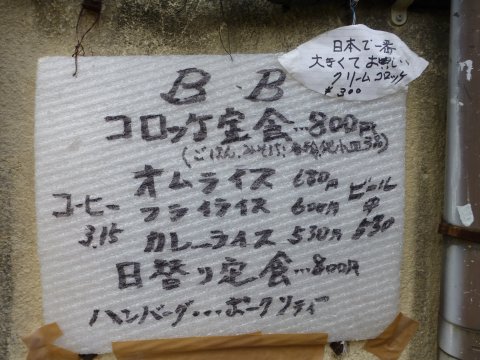 日本で一番
大きくてお美しい
クリームコロッケ
¥300
B.B
コロッケ定食…800円
(ごはん、みそしる、
オムライス 680円
フライライス 600円
カレーライス 530円
コーヒー
315
ビール
中
630
日替り定食…800円
ハンバーグ…ポークソティー